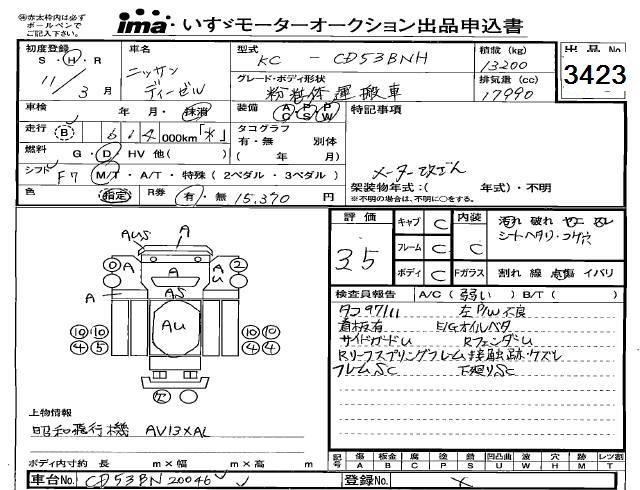 ㊟赤太枠内は必ず
ボールペンで
ご記入下さい。
ima いすゞモーターオークション出品申込書
初度登録
S・H・R
11/3月
車名
ニッサン
ディーゼル
型式
KC - CD53BNH
グレード・ボディ形状
粉粒体運搬車
積載 (kg)
13200
排気量 (cc)
17990
出品No
3423
車検 年 月・抹消
装備 AC PS PW
特記事項
走行 (B) 614 000km「水」
タコグラフ
有・無 別体
( 年 月)
燃料 G・D・HV 他( )
シフト F7 M/T・A/T・特殊(2ペダル・3ペダル)
色 指定 R券 有・無 15,370 円
メーター改ざん
架装物年式:( 年式)・不明
※不明の場合は、不明に○をする。
評価
35
キャブ C
フレーム C
ボディ C
内装 C
Fガラス
汚れ 破れ ヤニ ヌレ
シートヘタリ・コゲ穴
割れ 線 点傷 イバリ
検査員報告 A/C (弱い) B/T ( )
タコ97/11 左P/W不良
看板有 E/Gオイルベタ
サイドガードU RフェンダU
Rリーフスプリングフレム接触跡ケズレ
フレムSC 下廻りSC
A
AUS
A
A
AU
2
A
AS
A
AU
10 10
4 5
10 10
4 4
上物情報
昭和飛行機 AV13XAL
ボディ内寸約 長 m×幅 m×高 m
記号 傷 板金 腐 塗 錆 凹凸曲 波 穴 跡 レツ割
A B C P S U W H M T
車台No. CD53BN20046
登録No.